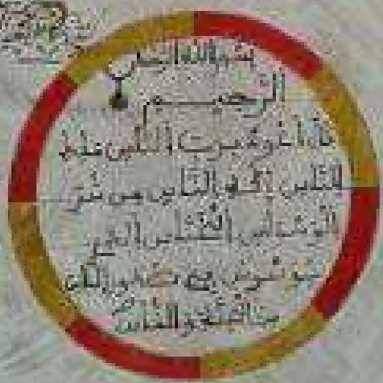 بسم الله الرحمن
الرحيم
قل أعوذ برب الناس ملك
الناس إله الناس من شر
الوسواس الخناس الذي
يوسوس في صدور الناس
من الجنة والناس